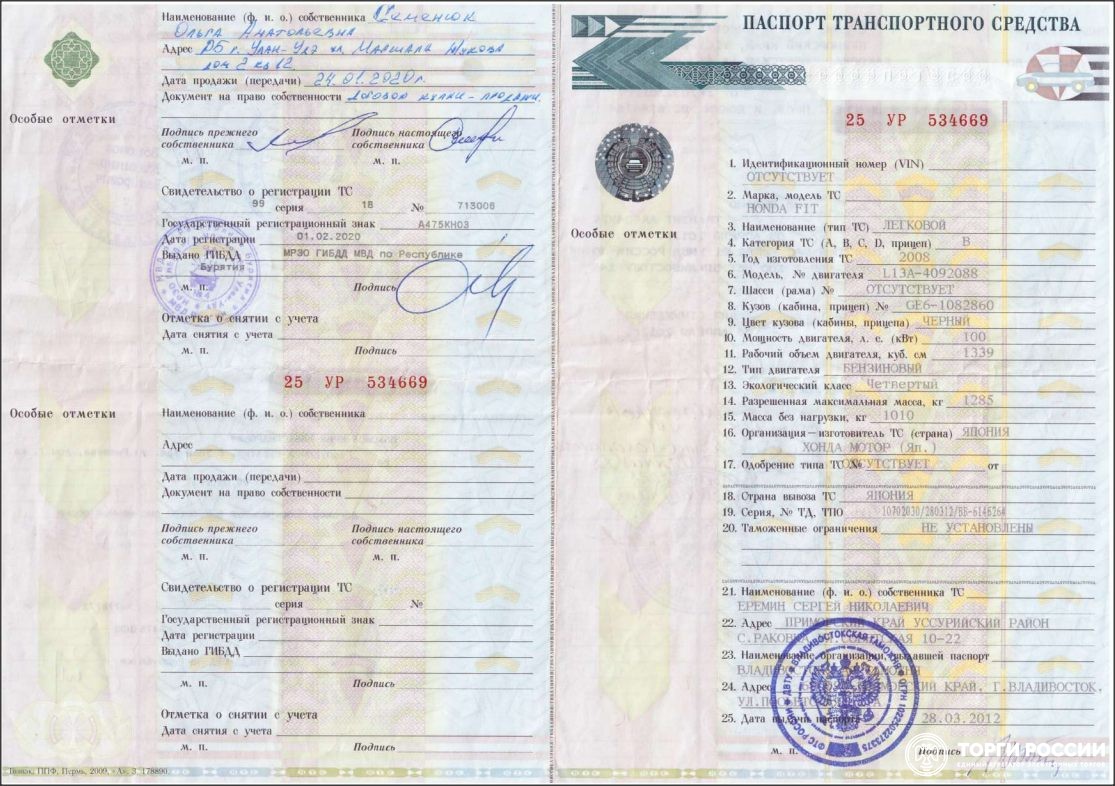 Наименование (ф. и. о.) собственника Семенюк
Ольга Анатольевна
Адрес РБ г. Улан-Удэ ул Маршала Жукова
дом 2 кв 12
Дата продажи (передачи) 24.01.2020г.
Документ на право собственности договор купли-продажи.
Особые отметки
Подпись прежнего собственника
Подпись настоящего собственника
м. п. м. п.
Свидетельство о регистрации ТС
99 серия 18 № 713006
Государственный регистрационный знак А475КН03
Дата регистрации 01.02.2020
Выдано ГИБДД МРЭО ГИБДД МВД по Республике
Бурятия
м. п. Подпись
Отметка о снятии с учета
Дата снятия с учета
м. п. Подпись
25 УР 534669
Особые отметки
Наименование (ф. и. о.) собственника
Адрес
Дата продажи (передачи)
Документ на право собственности
Подпись прежнего собственника
Подпись настоящего собственника
м. п. м. п.
Свидетельство о регистрации ТС
серия №
Государственный регистрационный знак
Дата регистрации
Выдано ГИБДД
м. п. Подпись
Отметка о снятии с учета
Дата снятия с учета
м. п. Подпись
ППФ, Пермь, 2009, «А». З. 178890
ПАСПОРТ ТРАНСПОРТНОГО СРЕДСТВА
25 УР 534669
Особые отметки
1. Идентификационный номер (VIN)
ОТСУТСТВУЕТ
2. Марка, модель ТС
HONDA FIT
3. Наименование (тип ТС) ЛЕГКОВОЙ
4. Категория ТС (A, B, C, D, прицеп) B
5. Год изготовления ТС 2008
6. Модель, № двигателя L13A-4092088
7. Шасси (рама) № ОТСУТСТВУЕТ
8. Кузов (кабина, прицеп) № GE6-1082860
9. Цвет кузова (кабины, прицепа) ЧЕРНЫЙ
10. Мощность двигателя, л. с. (кВт) 100
11. Рабочий объем двигателя, куб. см 1339
12. Тип двигателя БЕНЗИНОВЫЙ
13. Экологический класс Четвертый
14. Разрешенная максимальная масса, кг 1285
15. Масса без нагрузки, кг 1010
16. Организация—изготовитель ТС (страна) ЯПОНИЯ
ХОНДА МОТОР (Яп.)
17. Одобрение типа ТС № ОТСУТСТВУЕТ от
18. Страна вывоза ТС ЯПОНИЯ
19. Серия, № ТД, ТПО 10702030/280312/ВВ-6146264
20. Таможенные ограничения НЕ УСТАНОВЛЕНЫ
21. Наименование (ф. и. о.) собственника ТС
ЕРЕМИН СЕРГЕЙ НИКОЛАЕВИЧ
22. Адрес ПРИМОРСКИЙ КРАЙ УССУРИЙСКИЙ РАЙОН
С.РАКОВКА 10-22
23. Наименование организации, выдавшей паспорт
24. Адрес КРАЙ, Г.ВЛАДИВОСТОК,
25. Дата выдачи паспорта 28.03.2012
м. п. Подпись
ФТС РОССИИ ДВТУ ВЛАДИВОСТОКСКАЯ ТАМОЖНЯ ОГРН 1052502273375
ТОРГИ РОССИИ